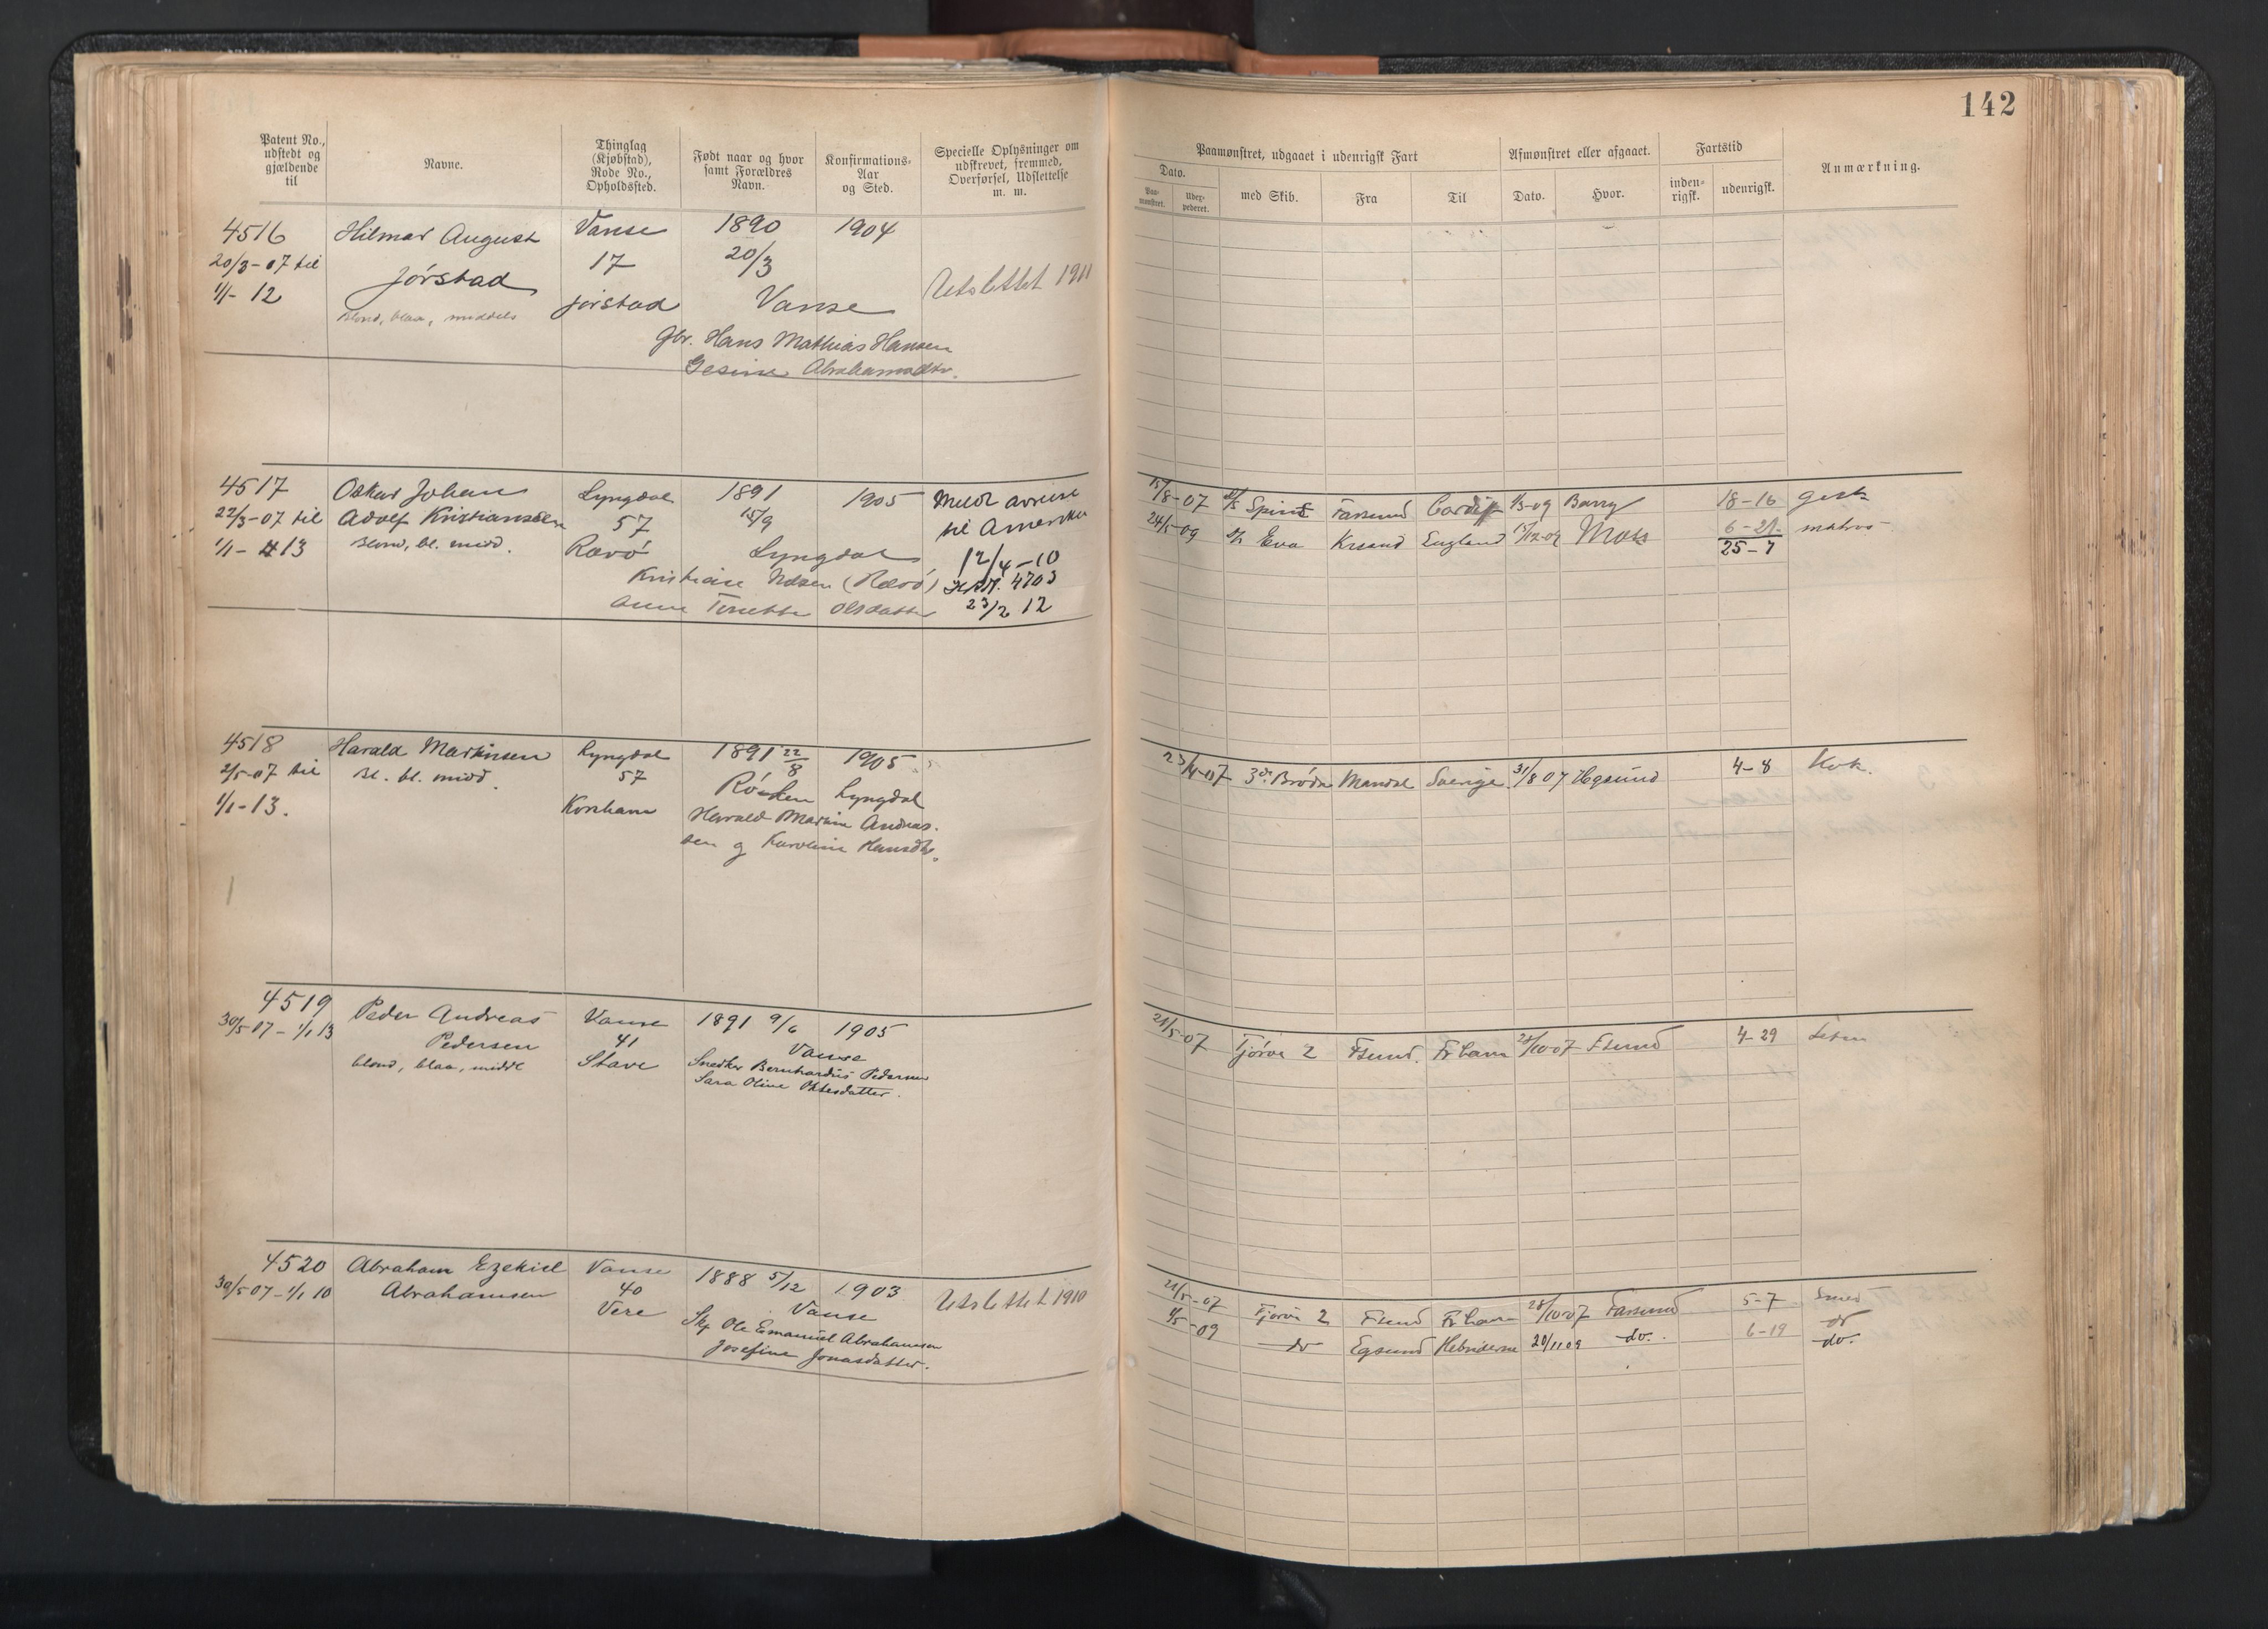 142
Patent No., udstedt og gjældende til
Navne.
Thinglag (Kjøbstad), Rode No., Opholdssted.
Født naar og hvor samt Forældres Navn.
Konfirmations-Aar og Sted.
Specielle Oplysninger om udskrevet, fremmed, Overførsel, Udslettelse m. m.
Paamønstret, udgaaet i udenrigsk Fart
Afmønstret eller afgaaet.
Fartstid
Anmærkning.
Dato.
Paa-mønstret.
Udex-pederet.
med Skib.
Fra
Til
Dato.
Hvor.
inden-rigsk.
udenrigsk.
4516 Hilmar August Vanse 1890 1904
20/3-07 til Jørstad 17 20/3
1/1-12 Jørstad Vanse Utslettet 1911
blond, blaa, middels
Gbr. Hans Mathias Hansen
Gesine Abrahamsdtr.
4517 Oskar Johan Lyngdal 1891 1905 Meldt avreise
22/3-07 til Adolf Kristiansen 57 15/9 til Amerika
1/1-13 Blond, bl. midd. Rævø Lyngdal 12/4-10
Kristian Nilsen (Rævø) 4703
Anne Tonette Olsdatter 23/2 12
15/8-07 Farsund Cardiff 1/3-09 Barry 18-16
24/5-09 Eva Krsand England 15/12-09 Moss 6-21 matros
25-7
4518 Harald Martinsen Lyngdal 1891 22/8 1905
2/5-07 til Bl. bl. midd. 57 Lyngdal
1/1-13. Korshavn Harald Martin Andreas-
sen og Karoline Hansdtr.
23/4-07 3de Brødre Mandal Sverige 31/8 07 4-8 Kok.
4519 Peder Andreas Vanse 1891 9/6 1905
30/5-07-1/1 13 Pedersen 41 Vanse
blond, blaa, middl Stave Snedker Bernhardus Pedersen
Sara Oline
21/5-07 Tjørve 2 Fsund. 28/10-07 Fsund 4-29
4520 Abraham Ezekiel Vanse 1888 5/12 1903
30/5 07-1/1 10 Abrahamsen 40 Vanse Utslettet 1910
Vere Ole Emanuel Abrahamsen
Josefine Jonasdatter.
21/5-07 Tjørve 2 Fsund 28/10-07 Farsund 5-7
1/5-09 do Egsund Hebriderne 20/11 09 do. 6-19 do.